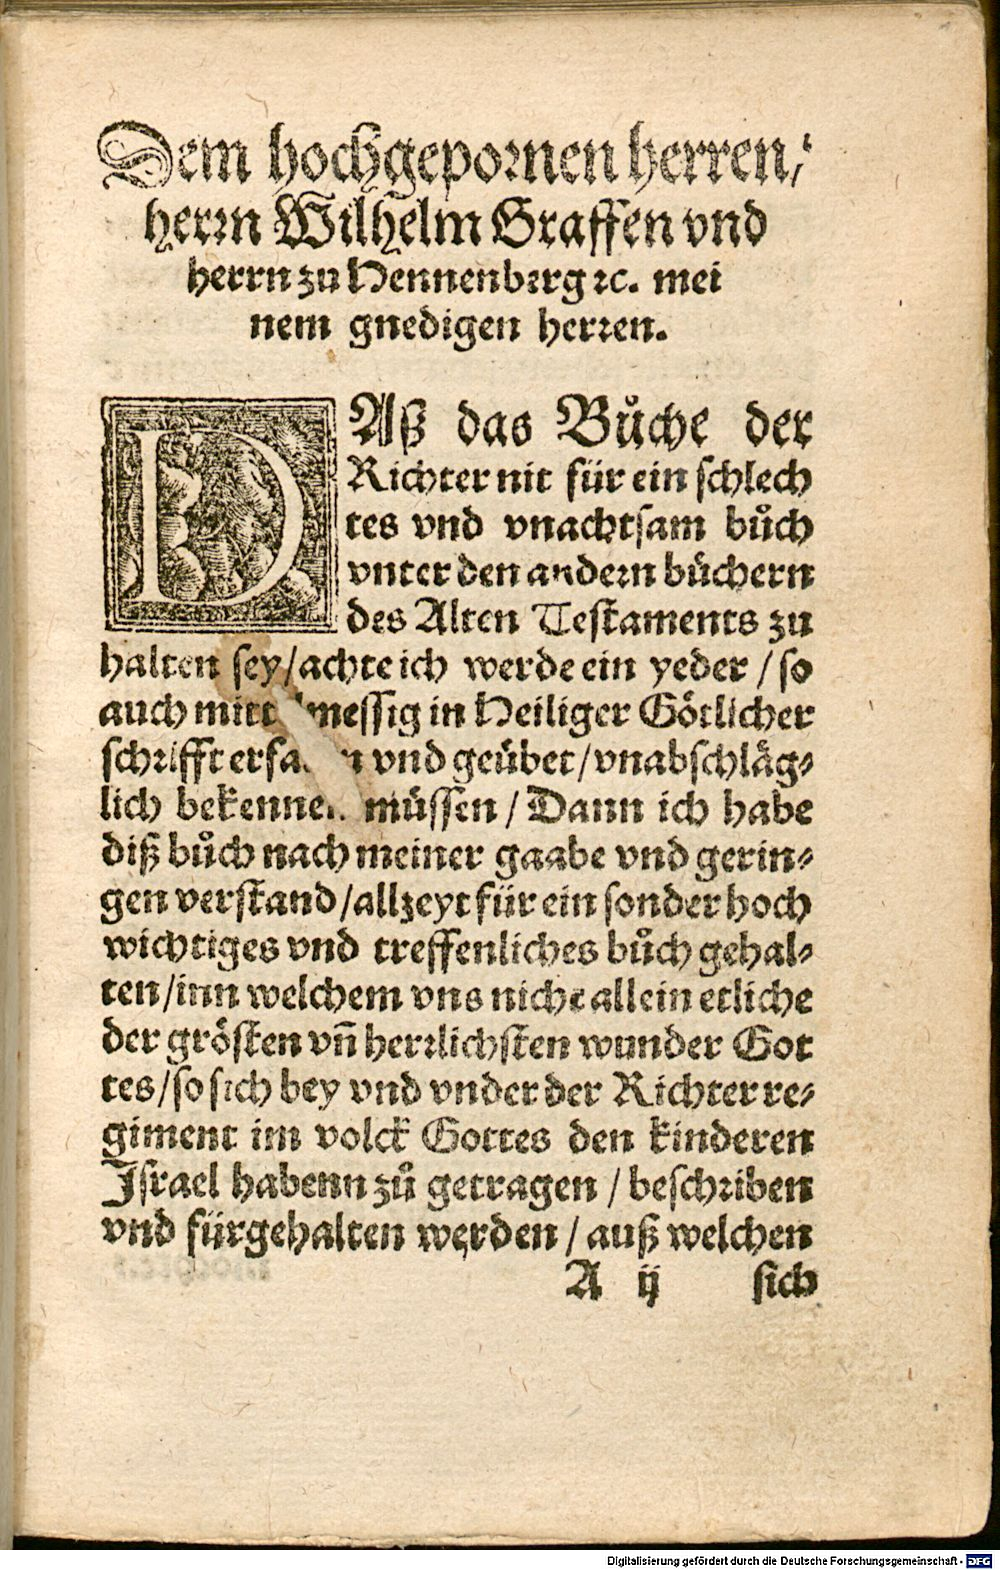 Dem hochgepornen herren,
herrn Wilhelm Graffen vnd
herrn zu Hennenbrrg ꝛc. mei
nem gnedigen herren.
DAß das Bůche der
Richter nit für ein schlech
tes vnd vnachtsam bůch
vnter den andern bůchern
des Alten Testaments zu
halten sey / achte ich werde ein yeder / so
auch messig in Heiliger Götlicher
schrifft vnd geübet / vnabschläg⸗
lich müssen / Dann ich habe
diß bůch nach meiner gaabe vnd gerin⸗
gen verstand / allzeyt für ein sonder hoch
wichtiges vnd treffenliches bůch gehal⸗
ten / inn welchem vns nicht allein etliche
der grösten vñ herrlichsten wunder Got
tes / so sich bey vnd vnder der Richter re⸗
giment im volck Gottes den kinderen
Israel habenn zů getragen / beschriben
vnd fürgehalten werden / auß welchen
A ij sich
Digitalisierung gefördert durch die Deutsche Forschungsgemeinschaft - DFG